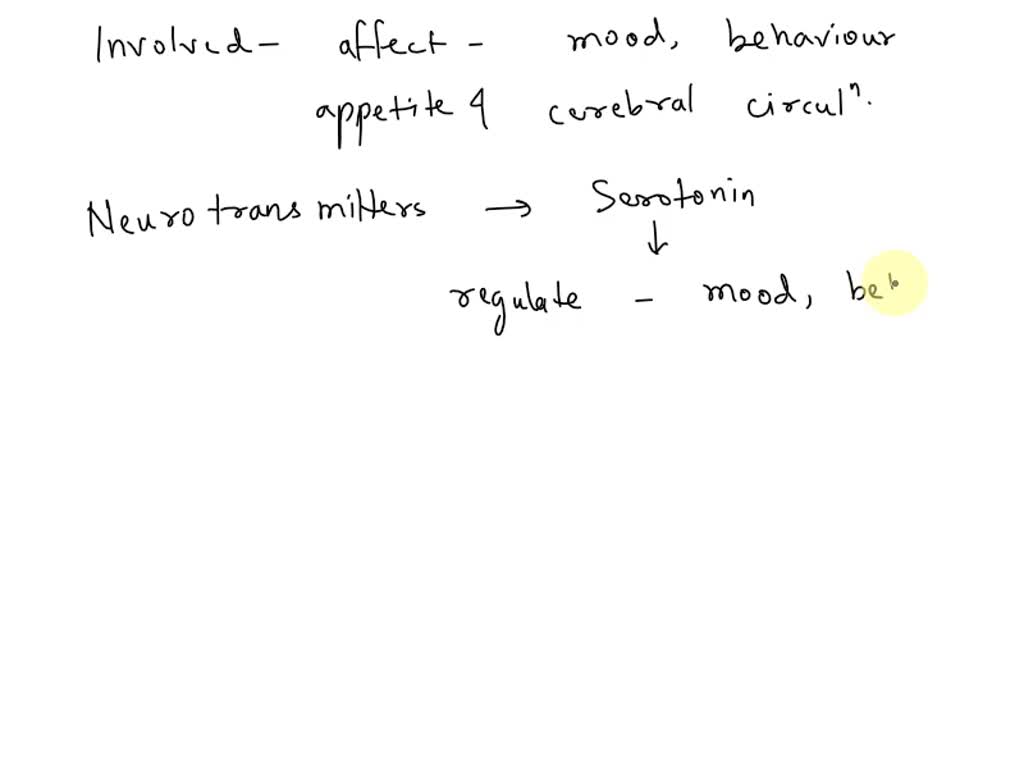 Involved - affect - mood, behaviour
appetite & cerebral circulⁿ.
Neurotransmitters → Serotonin
↓
regulate - mood,